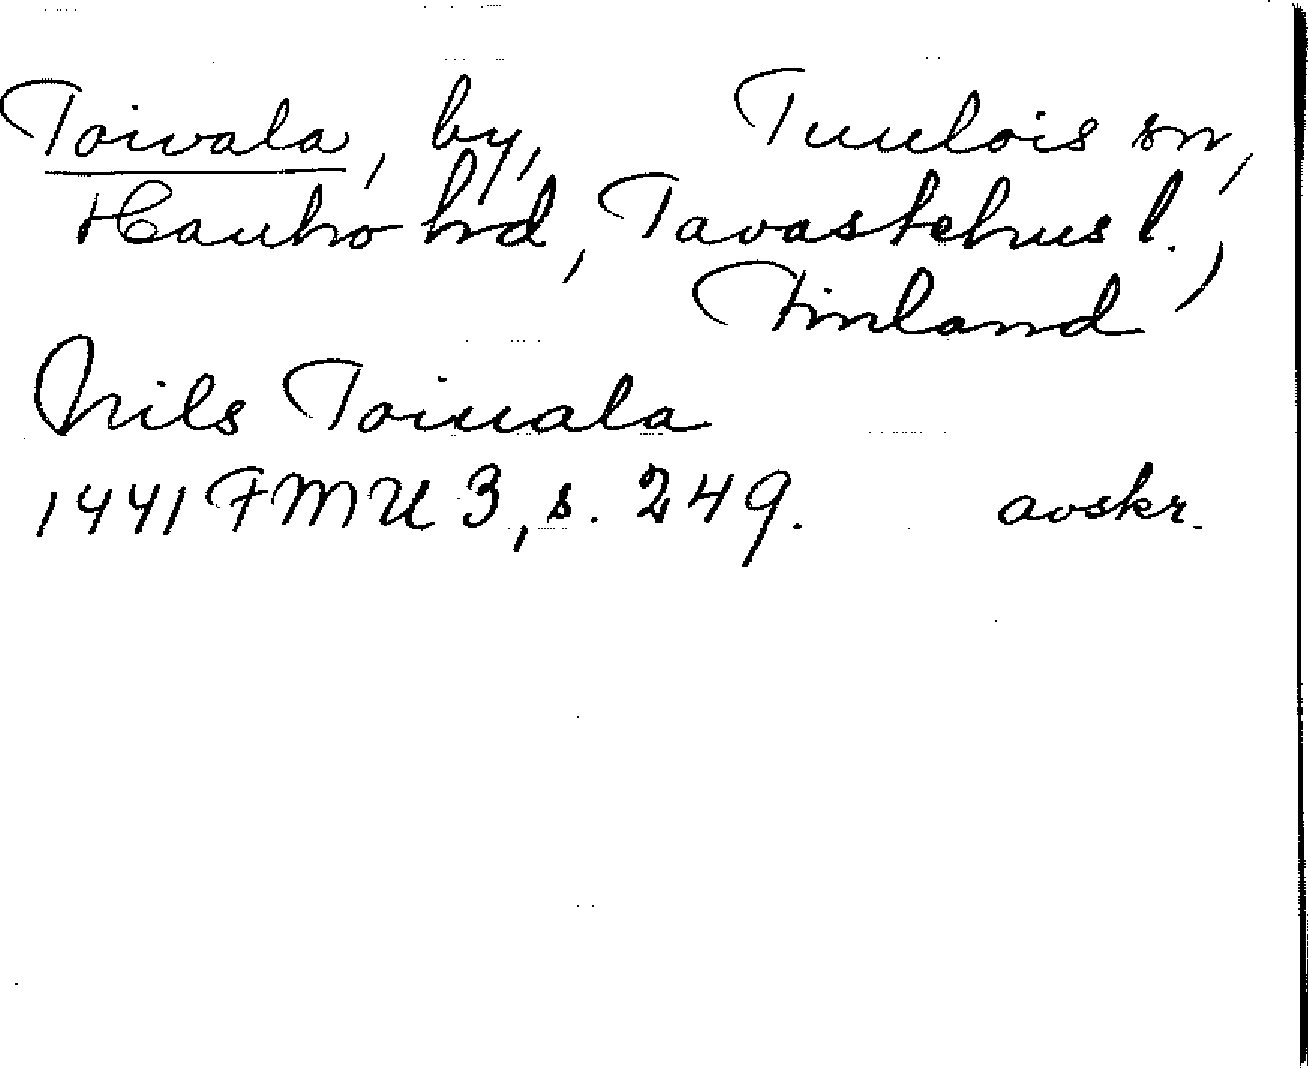 Toivala, by, Tuulois sn,
Hauho hd, Tavastehus l.,
Finland
Nils Toiuala
1441 FMU 3, s. 249. avskr.